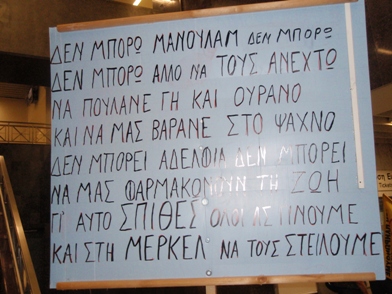 ΔΕΝ ΜΠΟΡΩ ΜΑΝΟΥΛΑΜ ΔΕΝ ΜΠΟΡΩ
ΔΕΝ ΜΠΟΡΩ ΑΛΛΟ ΝΑ ΤΟΥΣ ΑΝΕΧΤΩ
ΝΑ ΠΟΥΛΑΝΕ ΓΗ ΚΑΙ ΟΥΡΑΝΟ
ΚΑΙ ΝΑ ΜΑΣ ΒΑΡΑΝΕ ΣΤΟ ΨΑΧΝΟ
ΔΕΝ ΜΠΟΡΕΙ ΑΔΕΛΦΙΑ ΔΕΝ ΜΠΟΡΕΙ
ΝΑ ΜΑΣ ΦΑΡΜΑΚΩΝΟΥΝ ΤΗ ΖΩΗ
ΓΙ ΑΥΤΟ ΣΠΙΘΕΣ ΟΛΟΙ ΑΣ ΓΙΝΟΥΜΕ
ΚΑΙ ΣΤΗ ΜΕΡΚΕΛ ΝΑ ΤΟΥΣ ΣΤΕΙΛΟΥΜΕ